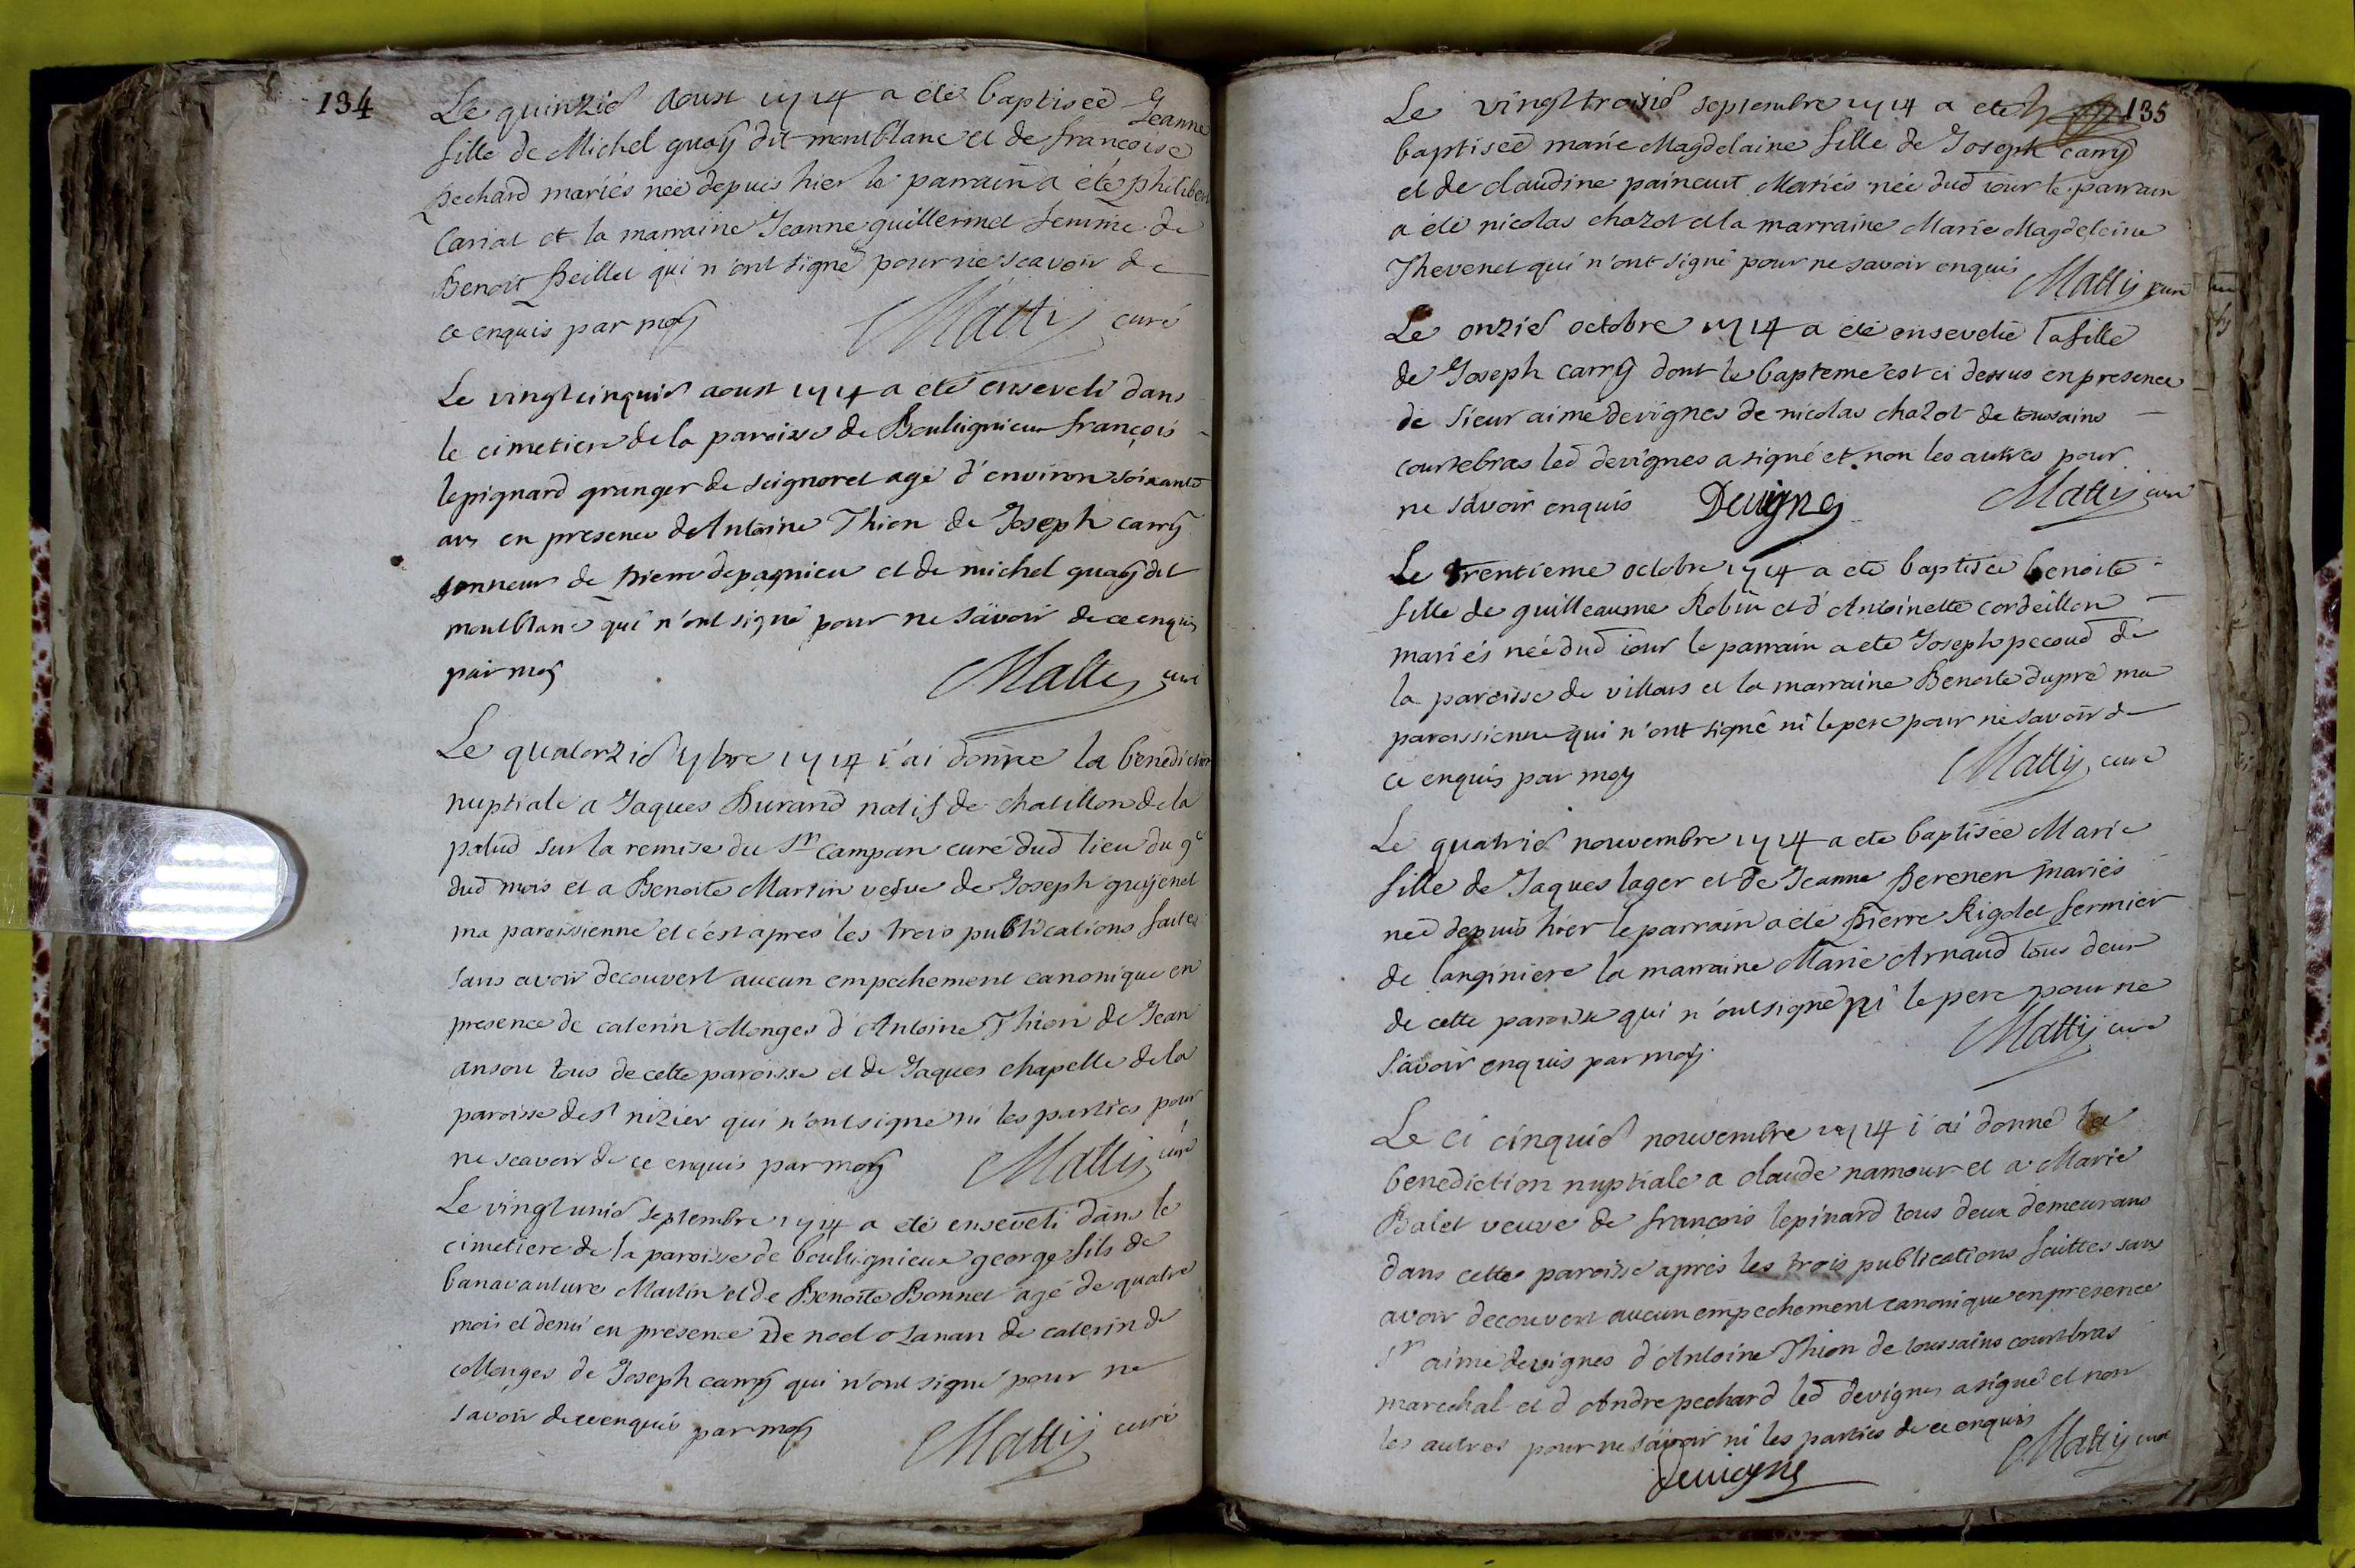 134
Le quinzie aoust 1714 a été baptiseé Jeanne
fille de Michel guay dit montblanc et de françoise
pechard mariés neé depuis hier le parrain a été philibert
Cariat et la marraine Jeanne guillermet femme de
Benoit Peillet qui n'ont signé pour ne scavoir de
ce enquis par moy Matty curé
Le vingtcinquie aoust 1714 a eté enseveli dans
le cimetiere de la paroisse de Bouligneux françois
lepignard granger de seignoret agé d'environ soixante
ans en presence d'Antoine Thion de Joseph carry
sonneur de pierre depagnieu et de michel guay dit
montblanc qui n'ont signé pour ne sävoir de ce enquis
par moy Matty curé
Le quatorzie 7bre 1714 i'ai donné la benediction
nuptiale a Jaques Durand natif de chatillon de la
palud sur la remise du Sr campan curé dud lieu du 9e
dud mois et a Benoite Martin vefve de Joseph guyenet
ma paroissienne et c'est apres les trois publications faites
sans avoir decouvert aucun empechement canonique en
presence de caterin collonges d'Antoine Thion de Jean
ansou tous de cette paroisse et de Jaques chapelle de la
paroisse de st nizier qui n'ont signé ni les parties pour
ne scavoir de ce enquis par moy Matty curé
Le vingtunie septembre 1714 a eté enseveli dans le
cimetiere de la paroisse de bouligneux george fils de
banavanture Martin et de Benoite Bonnet agé de quatre
mois et demi en presence De noel ozanan de caterin de
collonges de Joseph carry qui n'ont signé pour ne
savoir de ce enquis par moy Matty curé
135
Le vingttroisie septembre 1714 a eté
baptiseé marie Magdelaine fille de Joseph carry
et de claudine painaut Mariés née dud iour le parrain
a été nicolas chazot et la marraine Marie Magdeleine
Thevenet qui n'ont signé pour ne savoir enquis Matty curé
Le onzie octobre 1714 a eté ensevelie la fille
de Joseph carry dont le bapteme est ci dessus en presence
de sieur aimé devignes de nicolas chazot de toussains
courtebras led devignes a signé et non les autres pour
ne sävoir enquis Devignes Matty curé
Le trentieme octobre 1714 a eté baptiseé benoite
fille de guilleaume Robin et d'Antoinette cordeillon
mariés née dud iour le parrain a eté Joseph pecoud de
la paroisse de villars et la marraine Benoite dupré ma
paroissienne qui n'ont signé ni le pere pour ne savoir de
ce enquis par moy Matty curé
Le quatrie nouvembre 1714 a eté baptisée Marie
fille de Jaques lager et de Jeanne Perener mariés
neé depuis hier le parrain a eté Pierre Rigolet fermier
de langiniere la marraine Marie Arnaud tous deux
de cette paroisse qui n'ont signé ni le pere pour ne
sävoir enquis par moy Matty curé
Le ci cinquie nouvembre 1714 i'ai donné la
benediction nuptiale a claude namour et a Marie
Balet veuve de françois lepinard tous deux demeurans
dans cette paroisse aprés les trois publications faittes sans
avoir decouvert aucun empechement canonique en presence
sr aimé devignes d'Antoine Thion de toussains courtbras
marechal et d Andre pechard led devignes a signé et non
les autres pour ne sävoir ni les parties de ce enquis
Devignes Matty curé